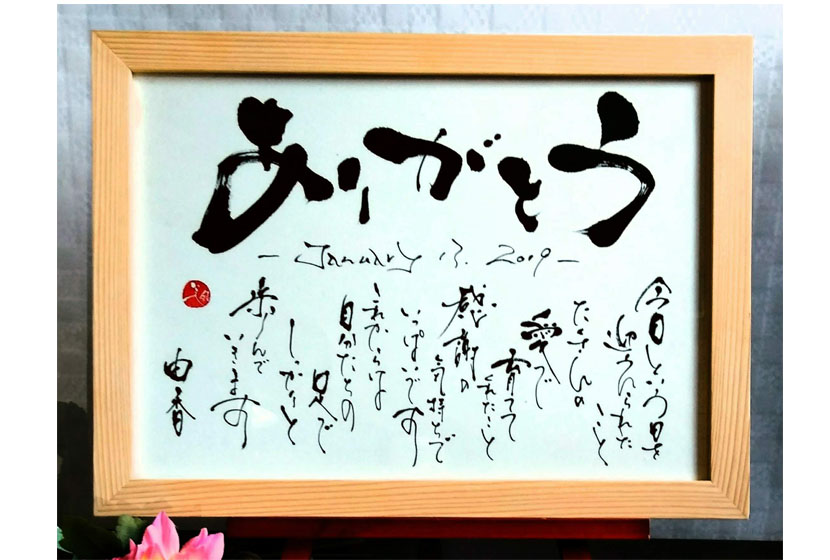 ありがとう
今日という日を
迎えられたこと
たくさんの
愛で
育ててくれたこと
感謝の
気持ちで
いっぱいです
これからは
自分たちの
足で
しっかりと
歩んで
いきます
由香